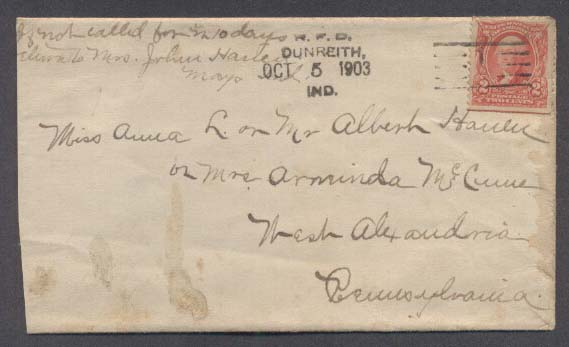 If not called for in 10 days
return to Mrs. John
Mays
R.F.D.
DUNREITH,
OCT 5 1903
IND.
2 2
POSTAGE
TWO CENTS
Miss Anna L. or Mr Albert
or Mrs. Arminda McCune
West Alexandria
Pennsylvania.